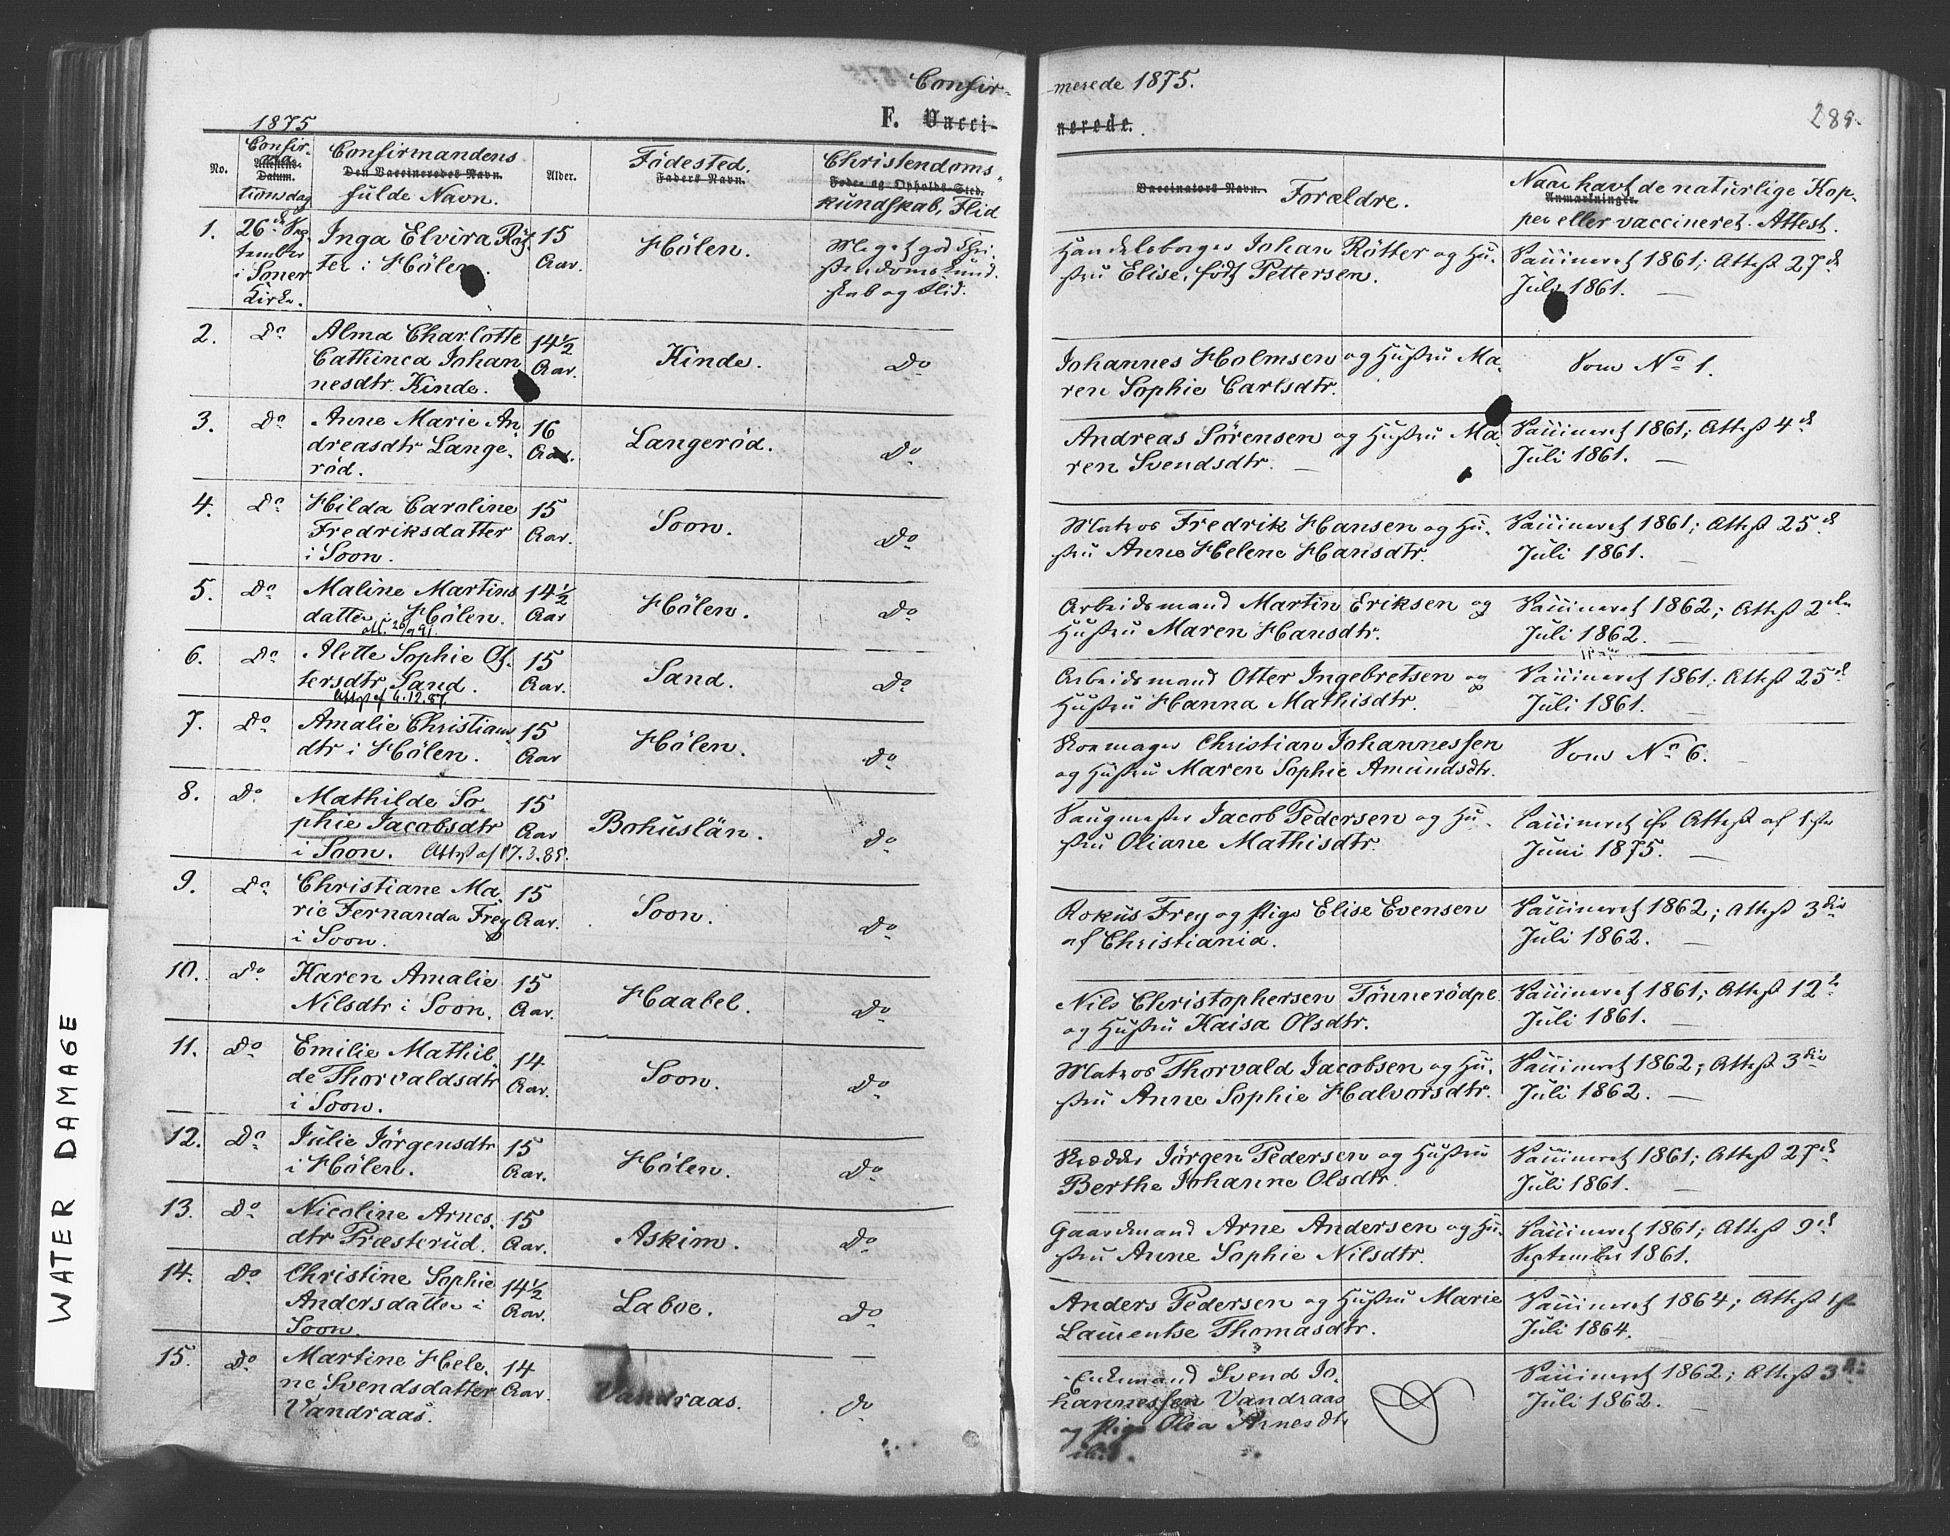 Confir-
merede 1875.
1875
F. Vacci-
nerede.
289.
No.
Confir-
ma-
Attestens
Datum.
tionsdag
Confirmandens
Den Vaccineredes Navn.
fulde Navn.
Alder.
Fødested.
Faders Navn.
Christendoms-
Føde- og Opholds-Sted.
kundskab, Flid
Vaccinators Navn. Forældre.
Naar havt de naturlige Kop-
Anmærkninger.
per eller vaccineret. Attest.
1. 26de Sep-
tember
i Soner
Kirke.
Inga Elvira Røt-
ter i Hølen.
15
Aar.
Hølen.
Meget god Chri-
stendomskund-
skab og Flid.
Handelsborger Johan Røtter og Hu-
stru Elise, født Pettersen.
Vaccineret 1861; Attest 27de
Juli 1861.
2. Do
Alma Charlotte
Cathinca Johan
nesdtr. Kinde.
14½
Aar.
Kinde.
Do
Johannes Holmsen og Hustru Ma-
ren Sophie Carlsdtr.
Som No 1.
3. Do
Anne Marie An-
dreasdtr Lange-
rød.
16
Aar.
Langerød.
Do
Andreas Sørensen og Hustru Ma-
ren Svendsdtr.
Vaccineret 1861; Attest 4de
Juli 1861.
4. Do
Hilda Caroline
Fredriksdatter
i Soon.
15
Aar.
Soon.
Do
Matros Fredrik Hansen og Hu-
stru Anne Helene Hansdtr.
Vaccineret 1861; Attest 25de
Juli 1861.
5. Do
Maline Martins
datter i Hølen.
14½
Aar
Hølen.
Do
Arbeidsmand Martin Eriksen og
Hustru Maren Hansdtr.
Vaccineret 1862; Attest 2den
Juli 1862.
6. Do
Alette Sophie Ot-
tersdtr Sand.
Attest af 6.12.87.
15
Aar.
Sand.
Do
Arbeidsmand Otter Ingebretsen og
Hustru Hanna Mathisdtr.
Vaccineret 1861; Attest 25de
Juli 1861.
7. Do
Amalie Christians
dtr i Hølen.
15
Aar
Hølen.
Do
Skomager Christian Johannessen
og Hustru Maren Sophie Amundsdtr.
Som No 6.
8. Do
Mathilde So-
phie Jacobsdtr
i Soon. Attest af 17.3.85.
15
Aar
Bohuslän.
Do
Saugmester Jacob Pedersen og Hu-
stru Oliane Mathisdtr.
Vaccineret ifr Attest af 1ste
Juni 1875.
9. Do
Christiane Ma-
rie Fernanda Frey
i Soon.
15
Aar.
Soon.
Do
Rokus Frey og Pige Elise Evensen
af Christiania.
Vaccineret 1862; Attest 3die
Juli 1862.
10. Do
Karen Amalie
Nilsdtr i Soon.
15
Aar.
Haabel.
Do
Nils Christophersen Tønnerødpe.
og Hustru Kaisa Olsdtr.
Vaccineret 1861; Attest 12te
Juli 1861.
11. Do
Emilie Mathil
de Thorvaldsdtr
i Soon.
14
Aar.
Soon.
Do
Matros Thorvald Jacobsen og Hu-
stru Anne Sophie Halvorsdtr.
Vaccineret 1862; Attest 3die
Juli 1862.
12. Do
Julie Jørgensdtr
i Hølen.
15
Aar.
Hølen.
Do
Skrædder Jørgen Pedersen og Hustru
Berthe Johanne Olsdtr.
Vaccineret 1861; Attest 27de
Juli 1861.
13. Do
Nicoline Arnes-
dtr Præsterud.
15
Aar.
Askim.
Do
Gaardmand Arne Andersen og Hu-
stru Anne Sophie Nilsdtr.
Vaccineret 1861; Attest 9de
September 1861.
14. Do
Christine Sophie
Andersdatter i
Soon.
14½
Aar.
Laboe.
Do
Anders Pedersen og Hustru Marie
Laurentse Thomasdtr.
Vaccineret 1864; Attest 1ste
Juli 1864.
15. Do
Martine Hele-
ne Svendsdatter
Vandraas.
14
Aar.
Vandraas.
Do
Enkemand Svend Jo-
hannessen Vandraas
og Pige Olea Arnesdtr
Vaccineret 1862; Attest 3die
Juli 1862.
WATER DAMAGE